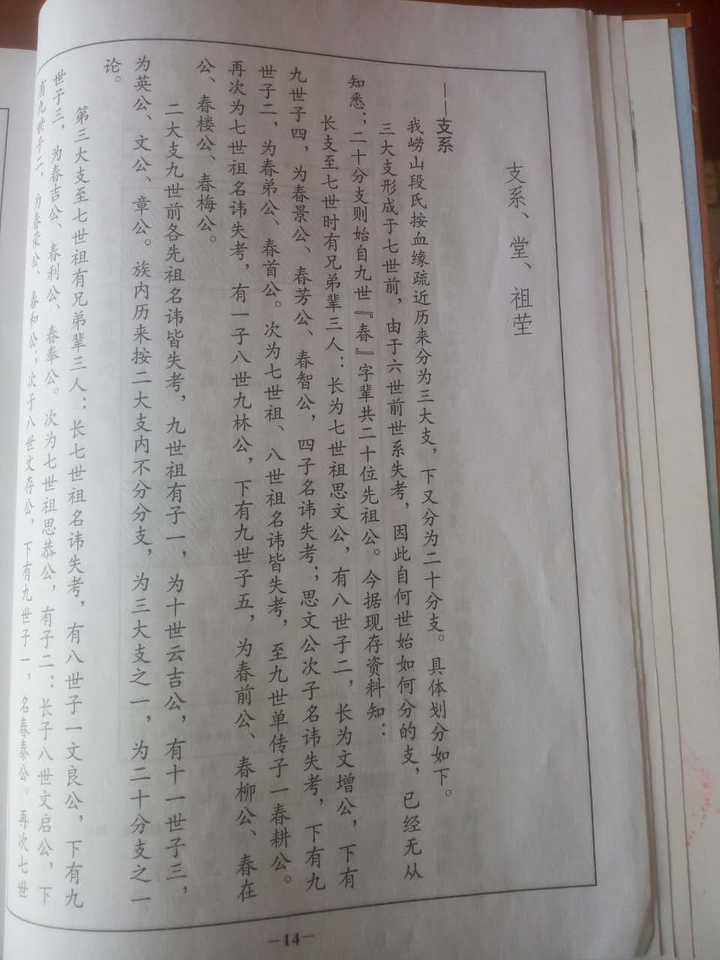 支系、堂、祖茔
——支系
我崂山段氏按血缘疏近历来分为三大支，下又分为二十分支。具体划分如下。
三大支形成于七世前，由于六世前世系失考，因此自何世始如何分的支，已经无从
知悉；二十分支则始自九世『春』字辈共二十位先祖公。今据现存资料知：
长支至七世时有兄弟辈三人：长为七世祖思文公，有八世子二，长为文增公，下有
九世子四，为春景公、春芳公、春智公，四子名讳失考；思文公次子名讳失考，下有九
世子二，为春弟公、春首公。次为七世祖、八世祖名讳皆失考，至九世单传子一春耕公。
再次为七世祖名讳失考，有一子八世九林公，下有九世子五，为春前公、春柳公、春在
公、春楼公、春梅公。
二大支九世前各先祖名讳皆失考，九世祖有子一，为十世云吉公，有十一世子三，
为英公、文公、章公。族内历来按二大支内不分分支，为三大支之一，为二十分支之一
论。
第三大支至七世祖有兄弟辈三人：长七世祖名讳失考，有八世子一文良公，下有九
世子三，为春吉公、春利公、春奉公。次为七世祖思恭公，有子二：长子八世文启公，下
有九世子二，为春荣公、春和公；次子八世文存公，下有九世子一，名春泰公。再次七世
—14—